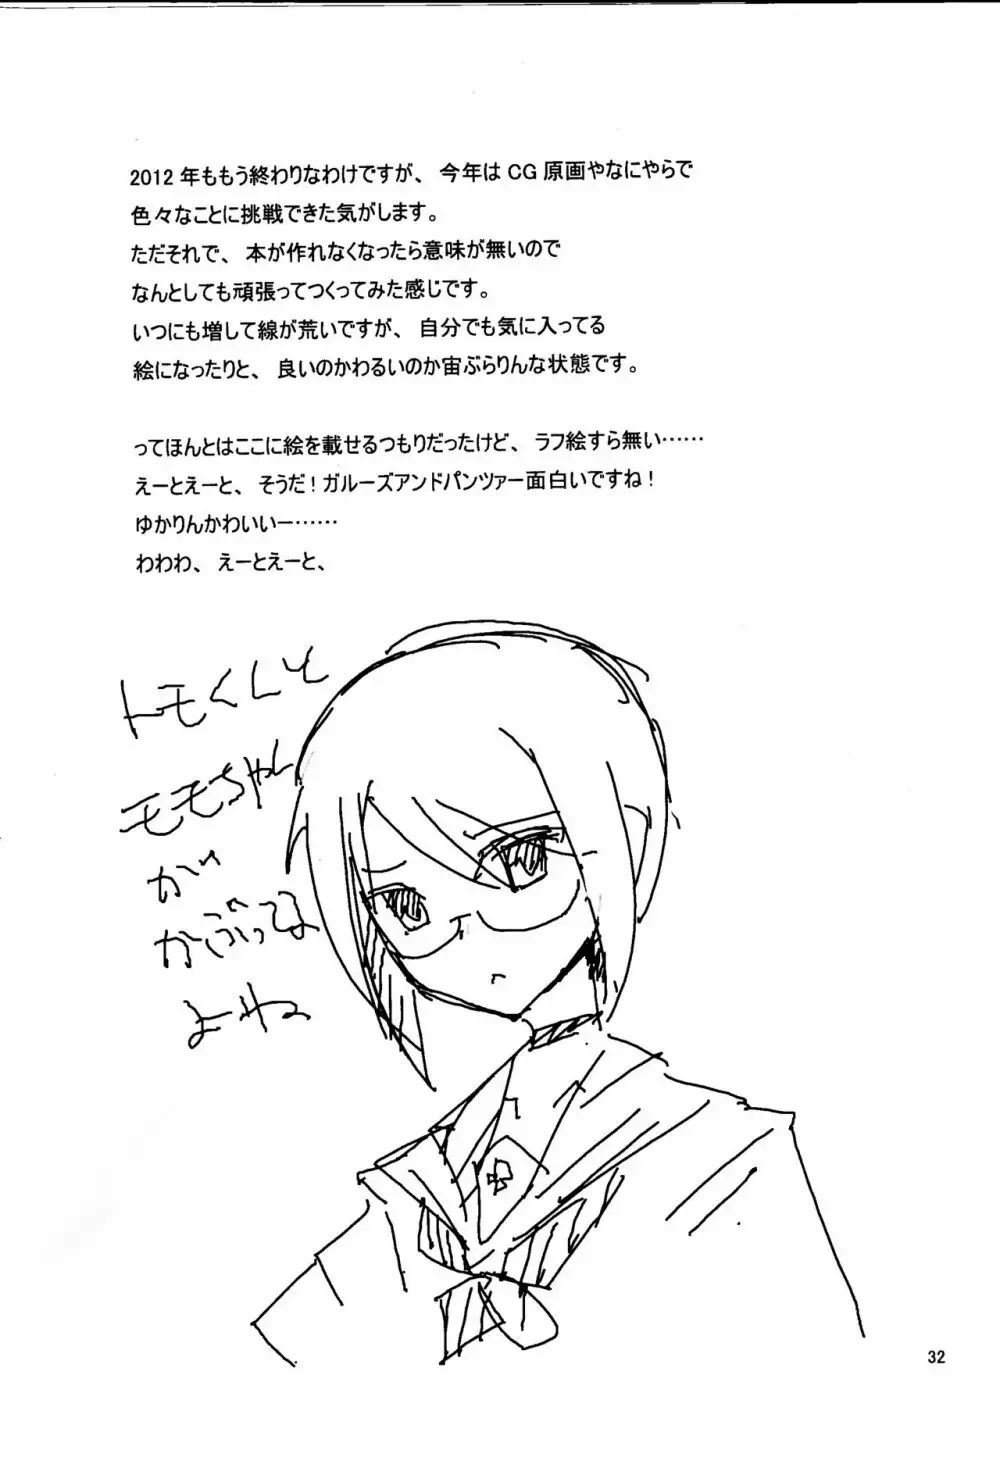 2012 年ももう終わりなわけですが、 今年は CG 原画やなにやらで
色々なことに挑戦できた気がします。
ただそれで、 本が作れなくなったら意味が無いので
なんとしても頑張ってつくってみた感じです。
いつにも増して線が荒いですが、 自分でも気に入ってる
絵になったりと、 良いのかわるいのか宙ぶらりんな状態です。
ってほんとはここに絵を載せるつもりだったけど、 ラフ絵すら無い……
えーとえーと、 そうだ！ガルーズアンドパンツァー面白いですね！
ゆかりんかわいいー……
わわわ、 えーとえーと、
トモくんと
モモちゃん
が
かぶってる
よね
32